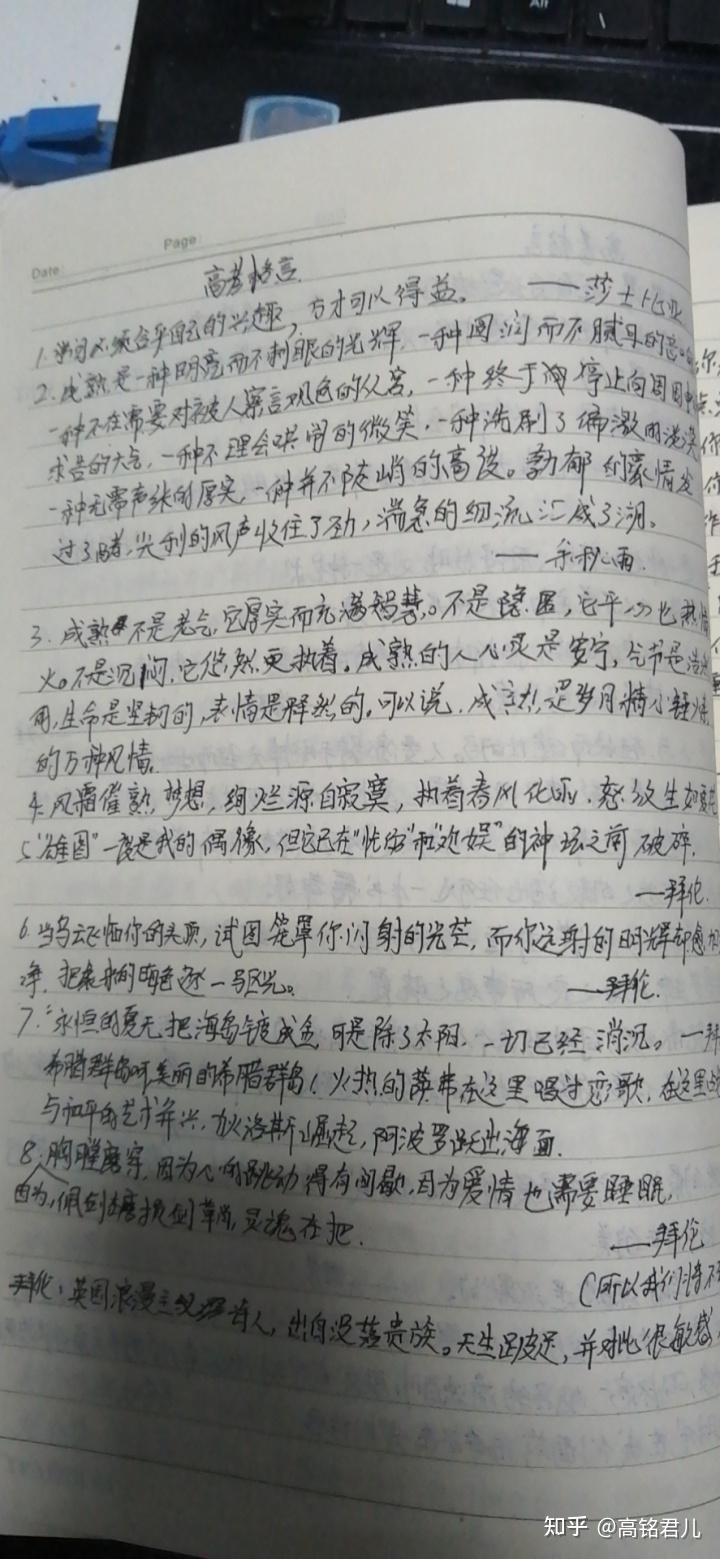 Alt
Date:
Page:
高考格言.
1.学问必须合乎自己的兴趣，方才可以得益。 ——莎士比亚
2.成熟是一种明亮而不刺眼的光辉，一种圆润而不腻耳的音响
一种不在需要对被人察言观色的从容，一种终于停止向周围申
求告的大气，一种不理会哄闹的微笑，一种洗刷了偏激的淡漠
一种无需声张的厚实，一种并不陡峭的高度。勃郁的豪情发
过了酵，尖利的风声收住了劲，湍急的细流汇成了湖。
——余秋雨.
3.成熟不是老气，它厚实而充满智慧。不是隐匿，它平心也热情
火。不是沉闷，它悠然更执着。成熟的人心灵是安宁，气节是
用，生命是坚韧的，表情是释然的。可以说，成熟，是岁月精小锤炼
的万种风情.
4.风霜催熟，梦想，绚烂源自寂寞，执着者 化 ，怒放生如夏花
5."雄图"一度是我的偶像，但它已在"忧伤"和"欢娱"的神坛之前破碎.
——拜伦.
6.当乌云飞临你的头顶，试图笼罩你闪射的光芒，而你远射的明辉却愈加
净，把 的暗色逐一驱光。 ——拜伦.
7."永恒的夏天把海岛镀成金，可是除了太阳，一切已经消沉。 —拜
希腊群岛呵，美丽的希腊群岛！火热的萨弗在这里唱过恋歌，在这里战
与和平的艺术并兴，狄洛斯崛起，阿波罗跃出海面.
8.胸膛磨穿，因为心的跳动得有间歇，因为爱情也需要睡眠，
因为，佩剑磨损剑革肖，灵魂在把.
——拜伦
（所以我们将不
拜伦：英国浪漫主义 诗人，出自没落贵族。天生跛足，并对此很敏感，
知乎 @高铭君儿